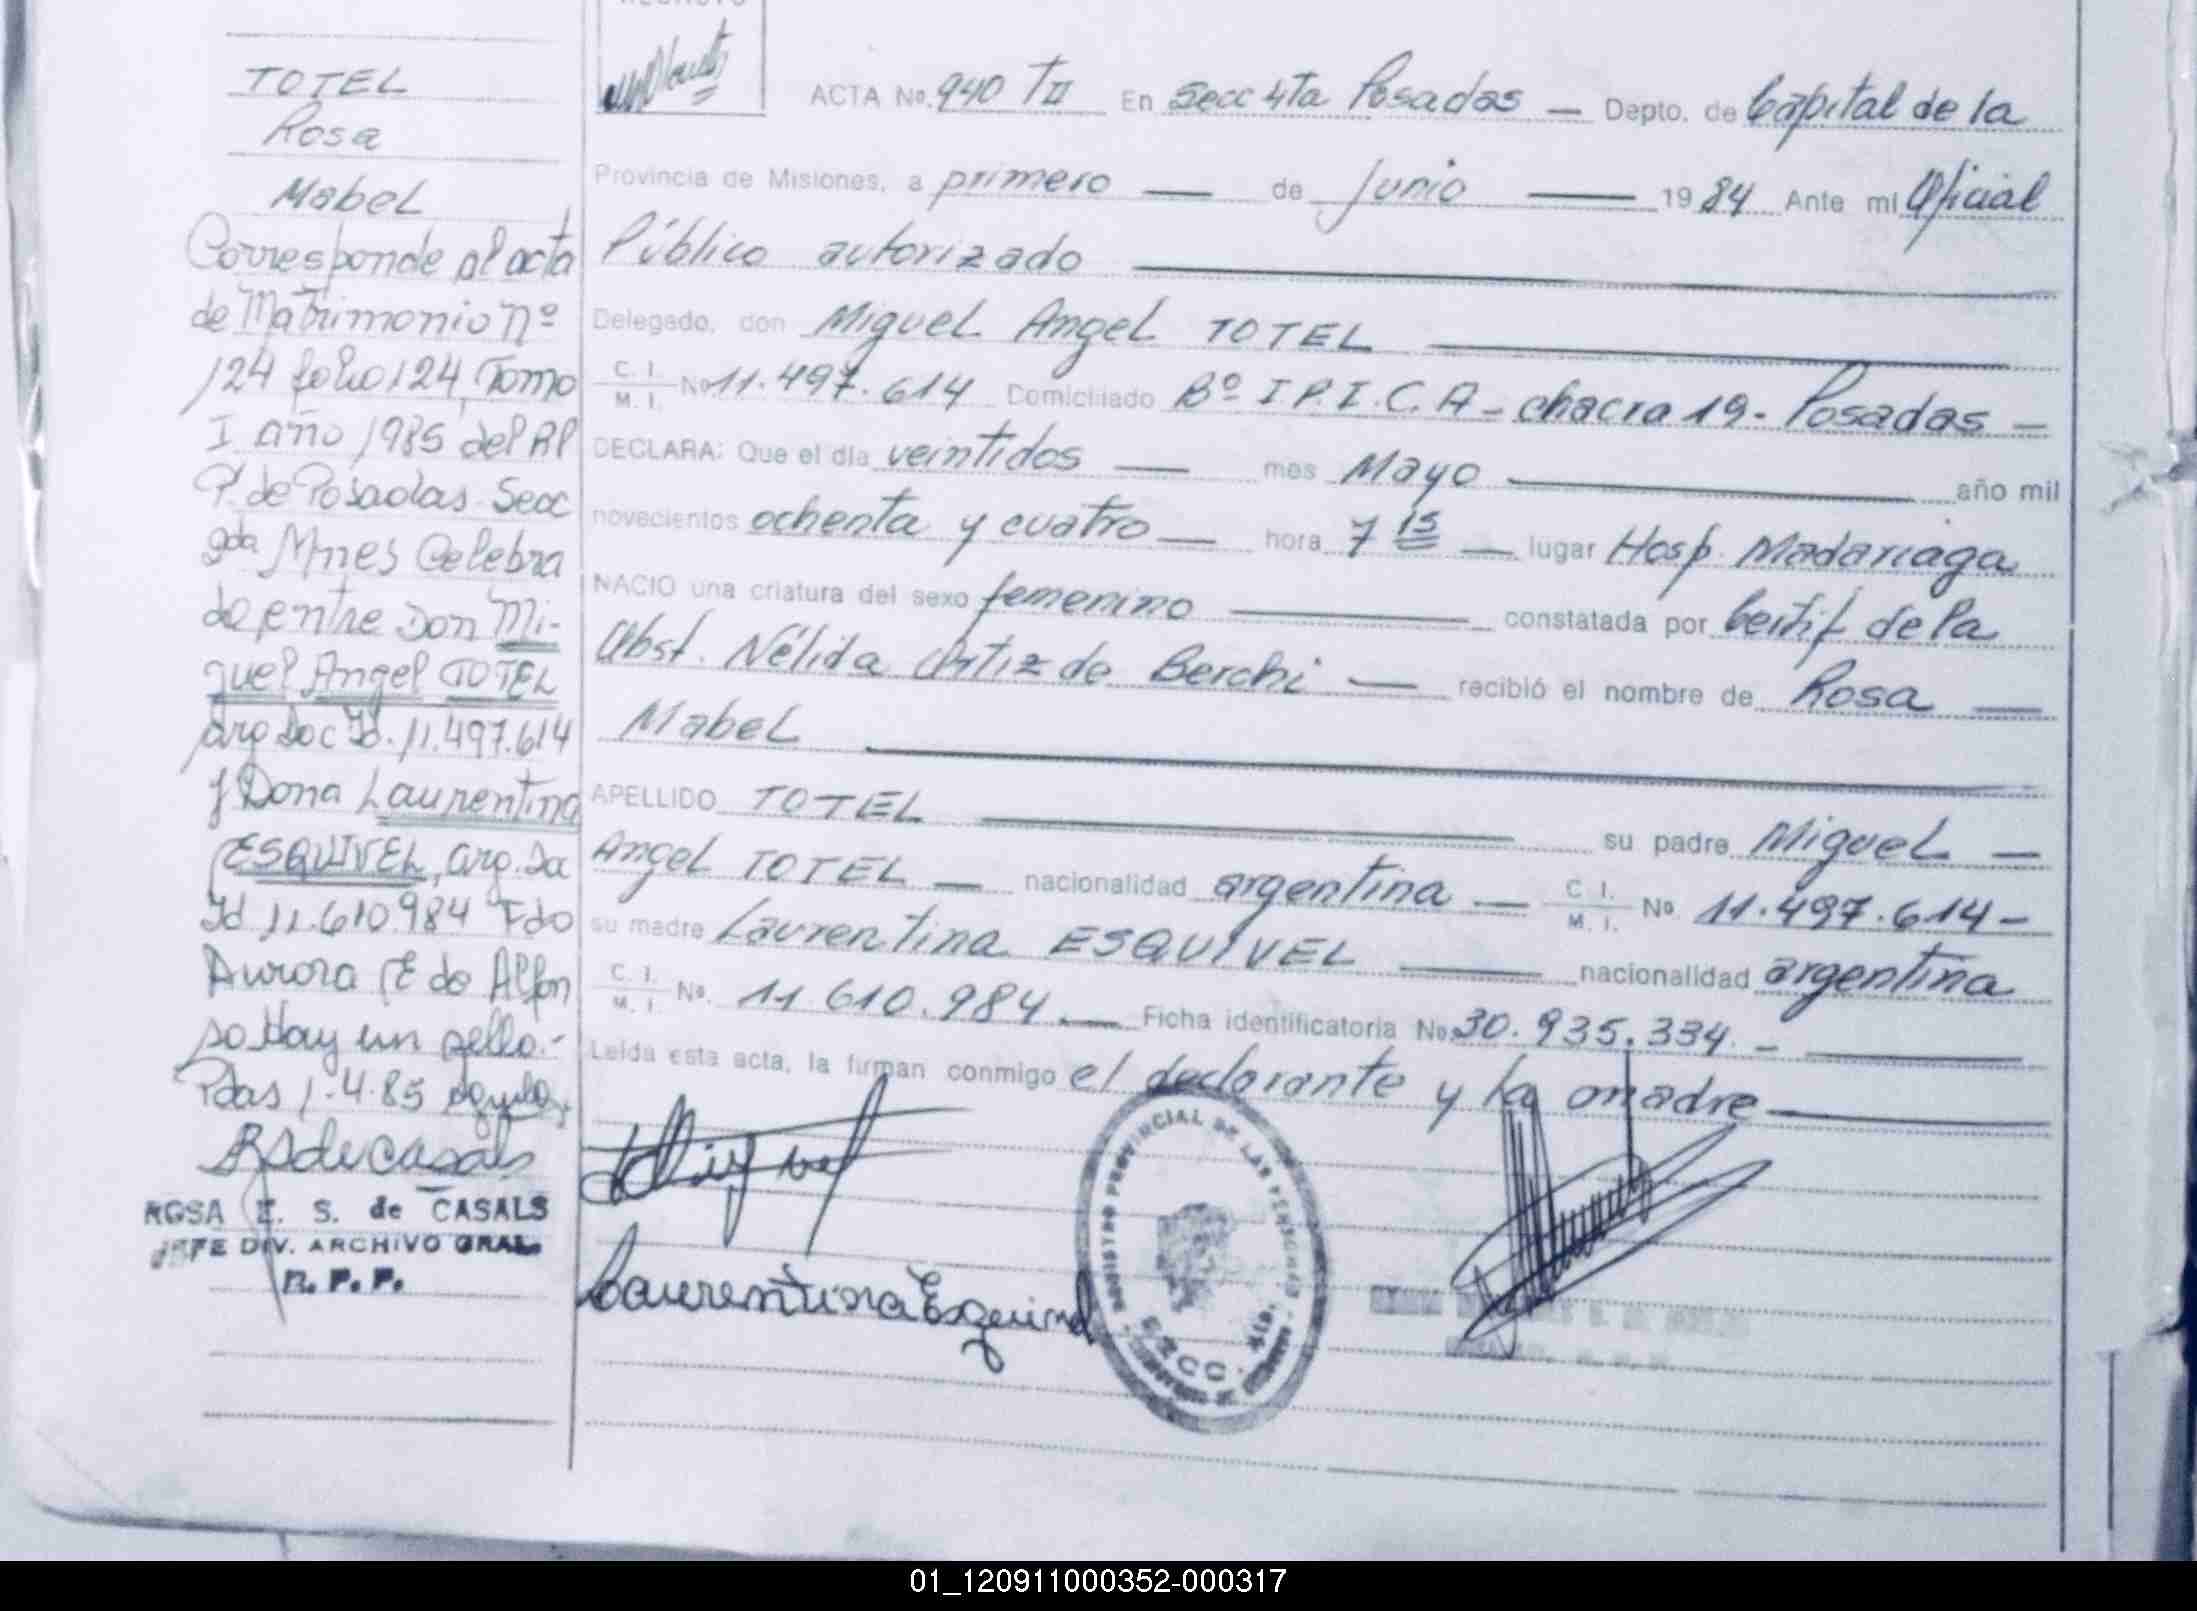 TOTEL
Rosa
Mabel
Corresponde al acta
de Matrimonio nº
124 folio 124, Tomo
I año 1985 del Rl
P. de Posadas Secc
gda Mnes Celebra
do entre Don Mi-
guel Angel TOTEL
arg Doc Id. 11.497.614
y Dona Laurentina
ESQUIVEL, arg. Do
Id 11.610.984 Fdo
Aurora E de Alfon
so Hay un sello.-
Pdas 1-4-85
RSdeCasals
ROSA E. S. de CASALS
JEFE DIV. ARCHIVO GRAL.
R. P. P.
ACTA No. 940 TII En Secc 4Ta Posadas — Depto. de Capital de la
Provincia de Misiones, a primero — de Junio — 1984 Ante mi Oficial
Público autorizado
Delegado, don Miguel Angel TOTEL
C. I. / M. I. No 11.497.614 Domiciliado Bº I P.I.C.A - chacra 19 - Posadas —
DECLARA: Que el día veintidos — mes Mayo — año mil
novecientos ochenta y cuatro — hora 7 15 — lugar Hosp. Madariaga
NACIO una criatura del sexo femenino — constatada por Certif de la
Obst. Nélida Ortiz de Berchi — recibió el nombre de Rosa —
Mabel
APELLIDO TOTEL — su padre Miguel —
Angel TOTEL — nacionalidad argentina — C. I. / M. I. No 11.497.614 -
su madre Laurentina ESQUIVEL — nacionalidad argentina
C. I. / M. I. No. 11.610.984. — Ficha identificatoria No. 30.935.334. —
Leída esta acta, la firman conmigo el declarante y la madre
Miguel
Laurentina Esquivel
REGISTRO PROVINCIAL DE LAS PERSONAS
SECC. 4ta.
01_120911000352-000317